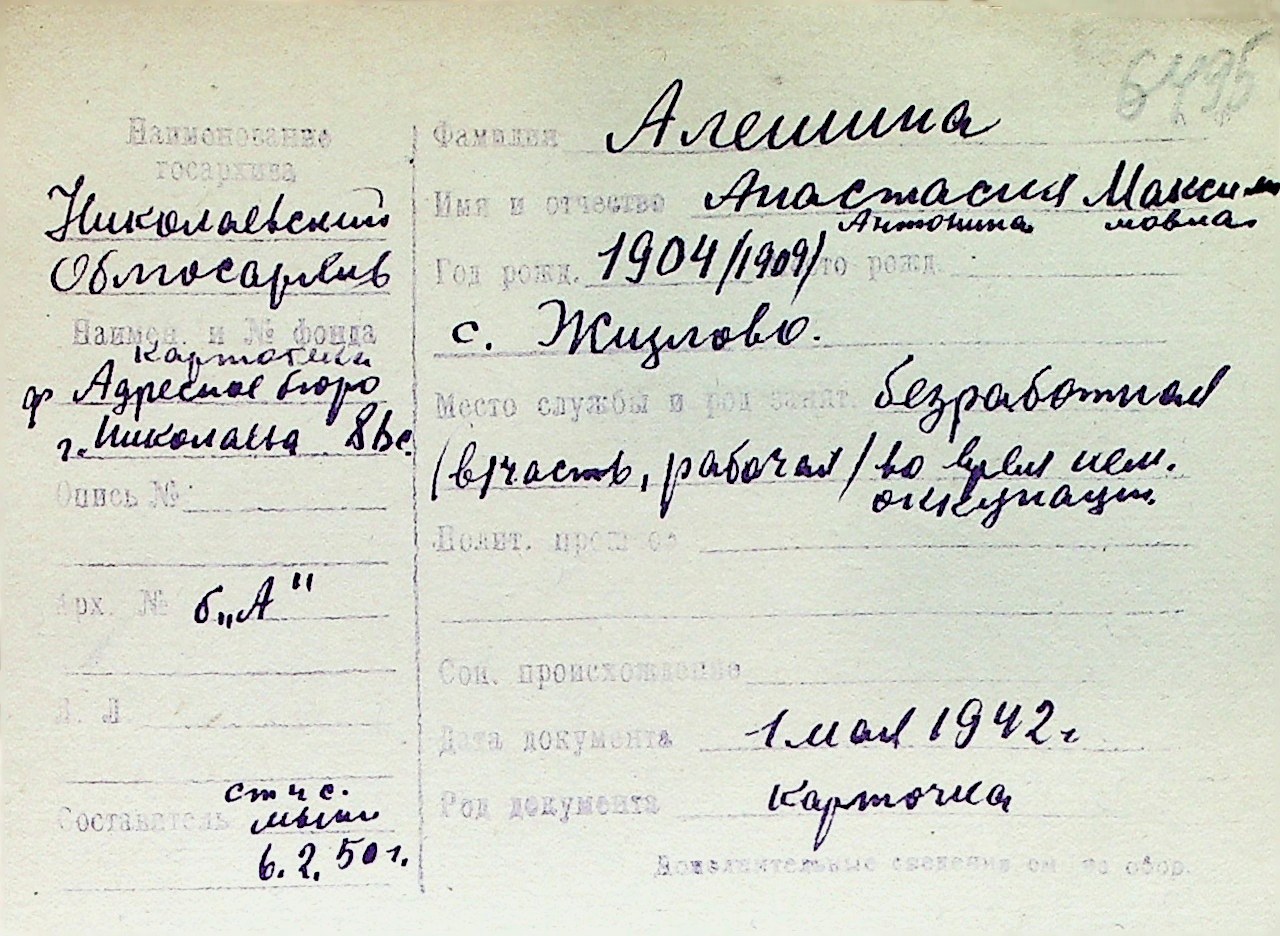 6495
Наименование
госархива
Николаевский
Облгосархив
Наимен. и № фонда
картотека
ф Адресное бюро
г. Николаева
Опись №
Арх. № б„А"
Л. Л.
Составитель
6.2.50 г.
Фамилия Алешина
Имя и отчество Анастасия Максими
Антонина мовна
Год рожд. 1904/1909/ место рожд.
с. Жизлово.
Место службы и род занят. безработная
(в/часть, рабочая) во время нем.
оккупации.
Полит. прошлое
Соц. происхождение
Дата документа 1 мая 1942 г
Род документа карточка
Дополнительные сведения см. на обор.